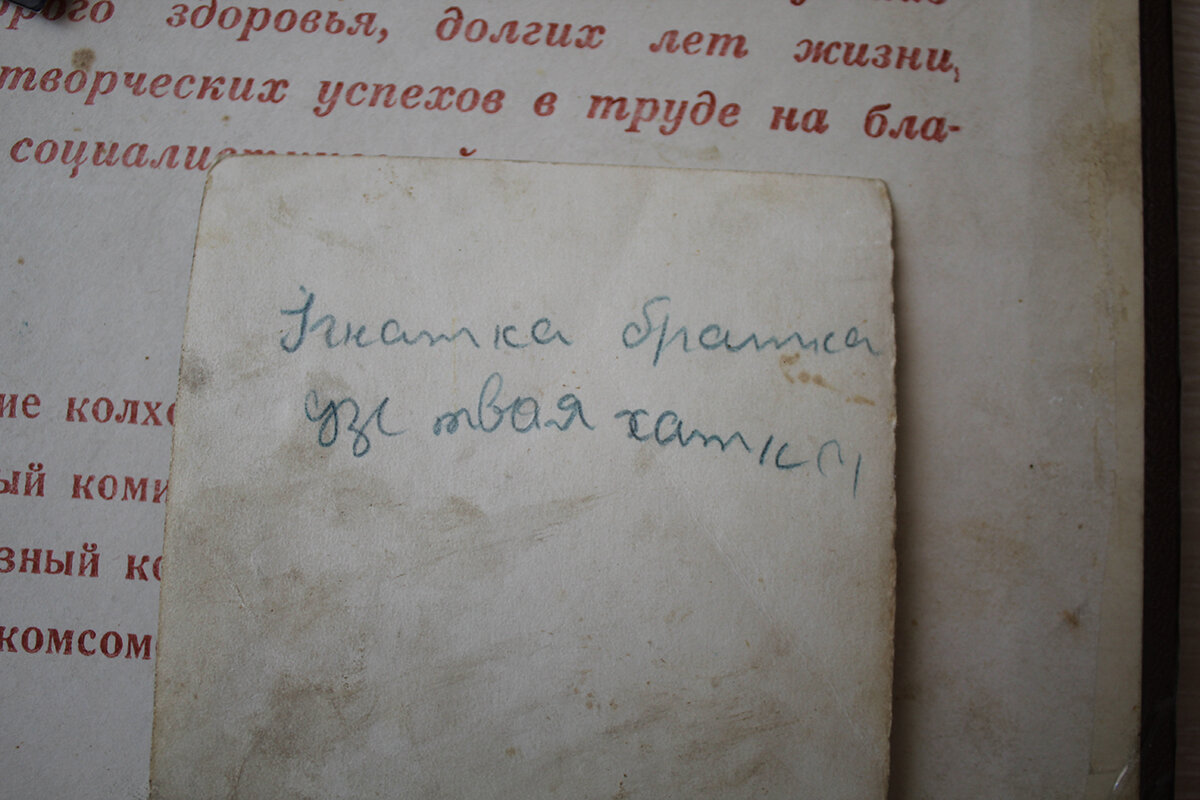 орого здоровья, долгих лет жизни,
творческих успехов в труде на бла-
социалистической
Ігнатка братка
узе твая хатка
ие колхо
ый коми
зный ко
комсомо